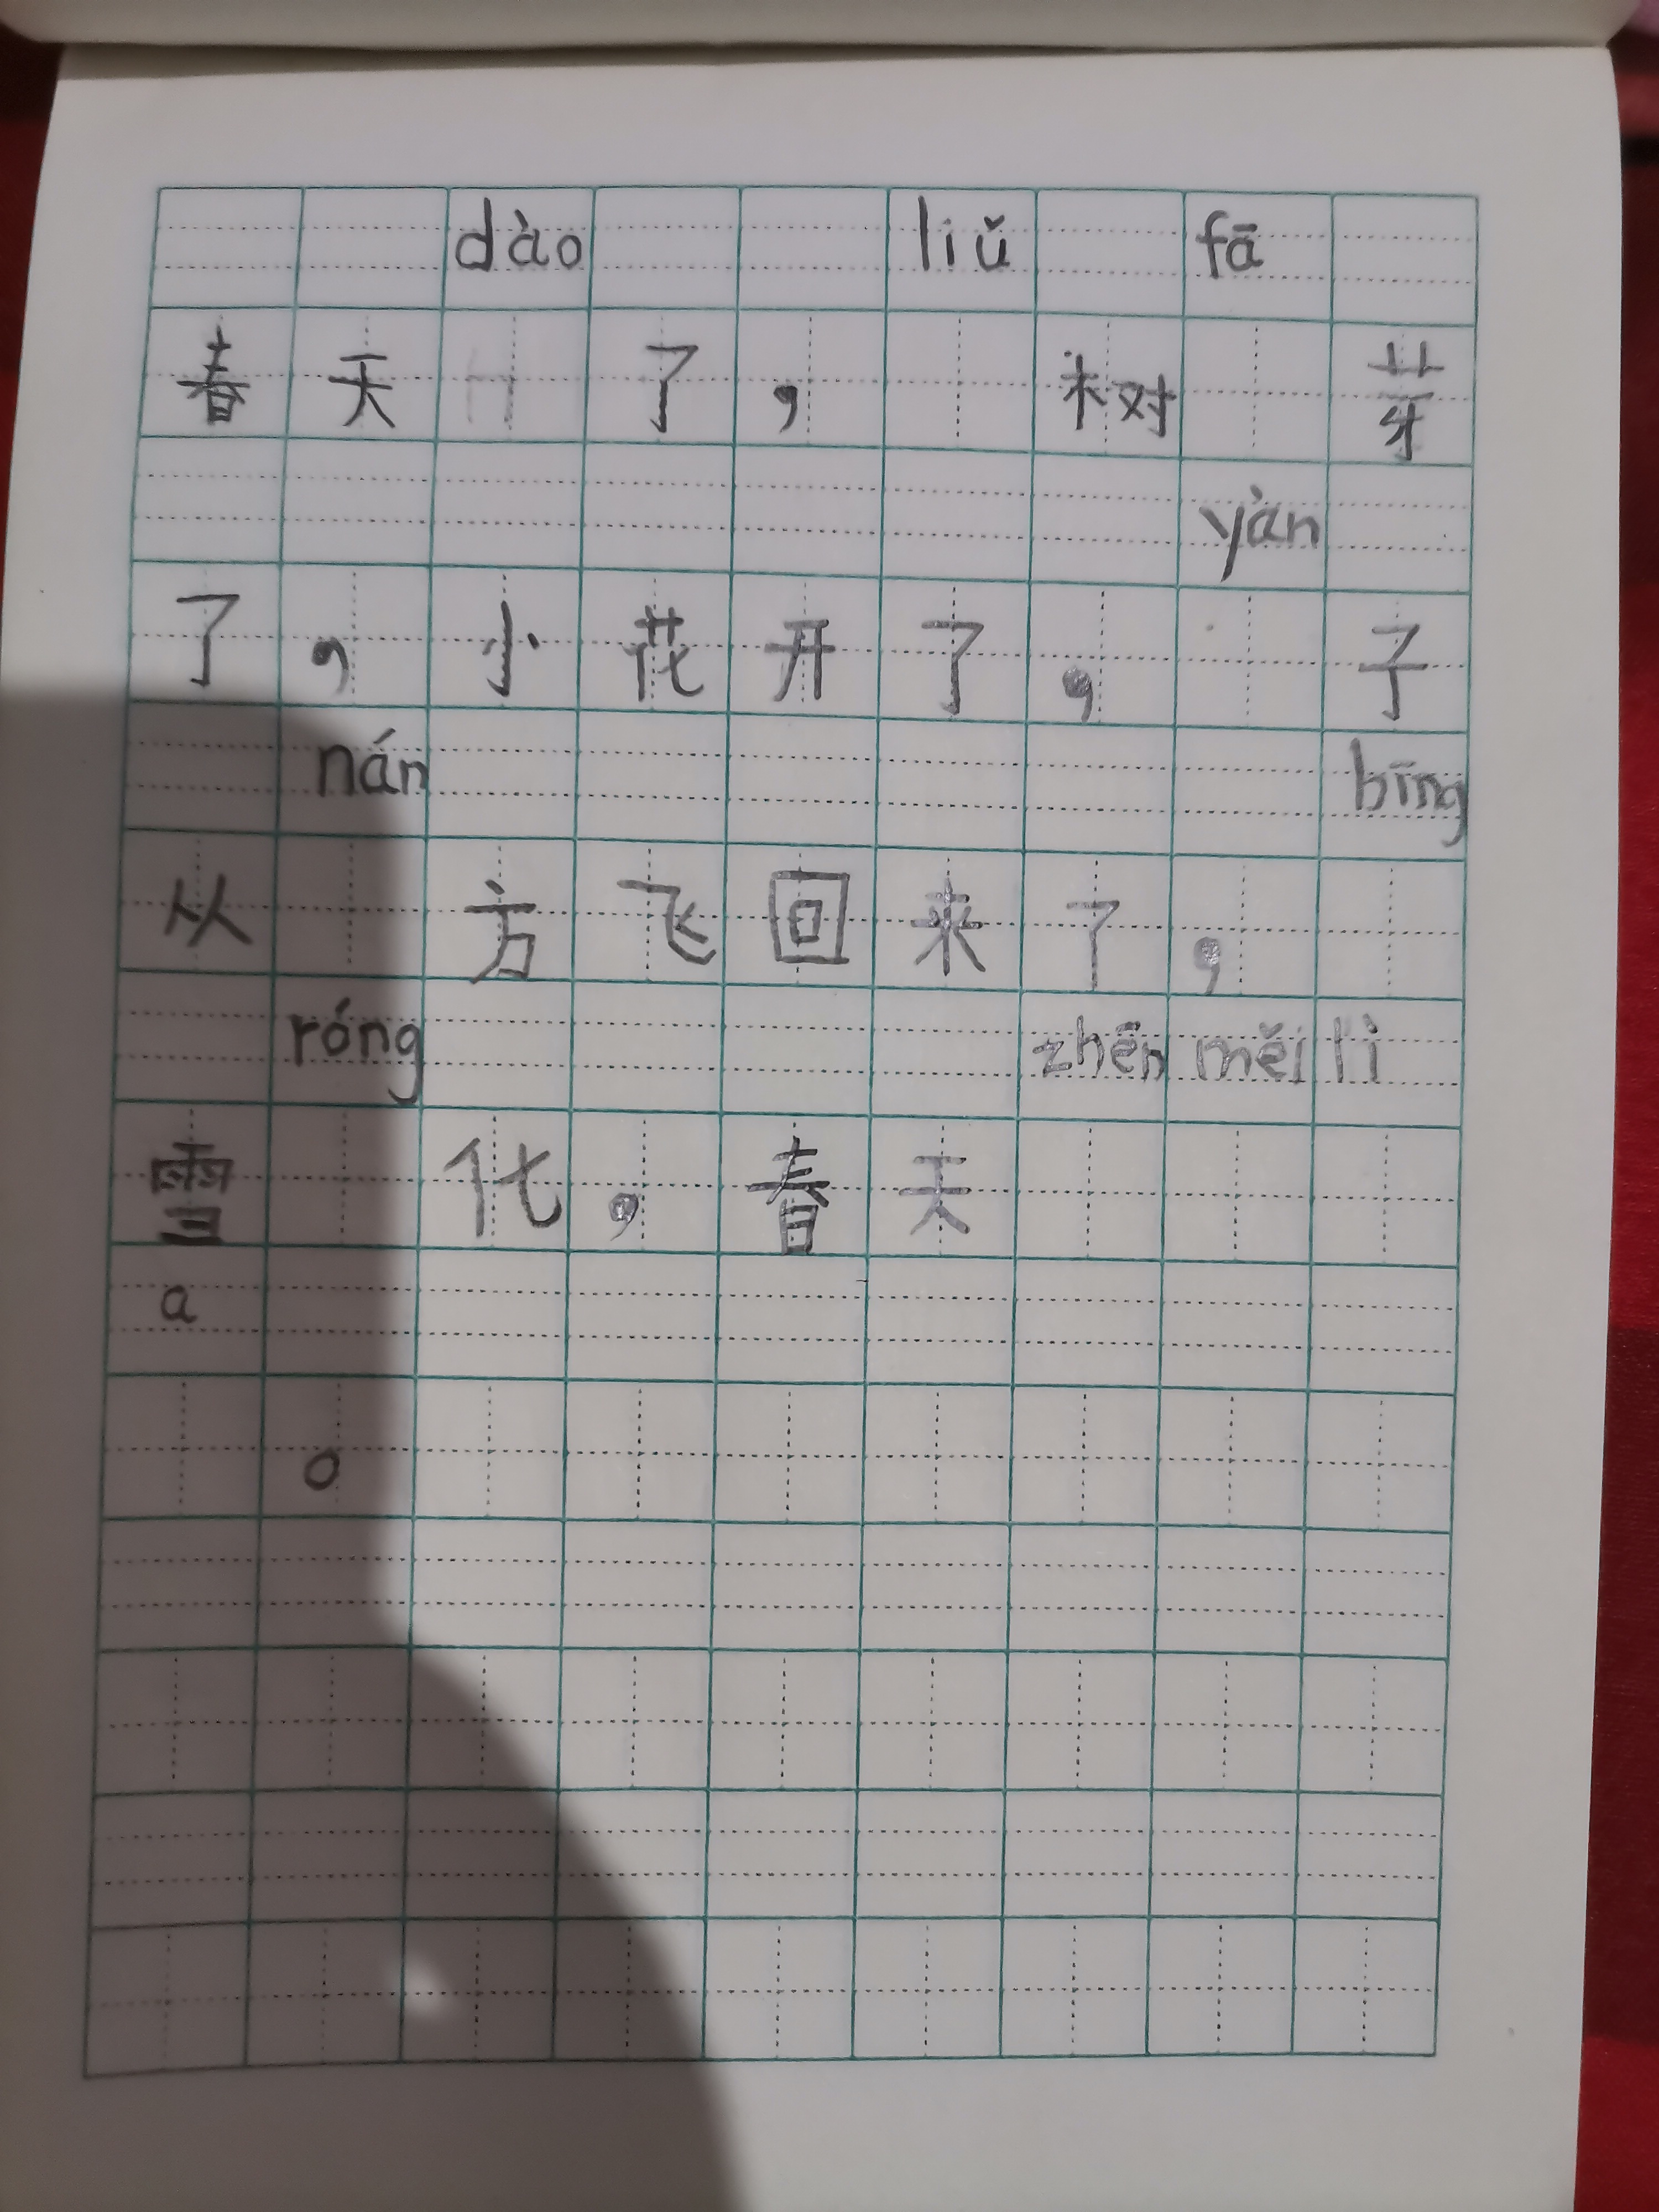 dào liǔ fā
春天了，树芽
yàn
了，小花开了，子
nán bīng
从方飞回来了，
róng zhēn měi lì
雪化，春天
a
。